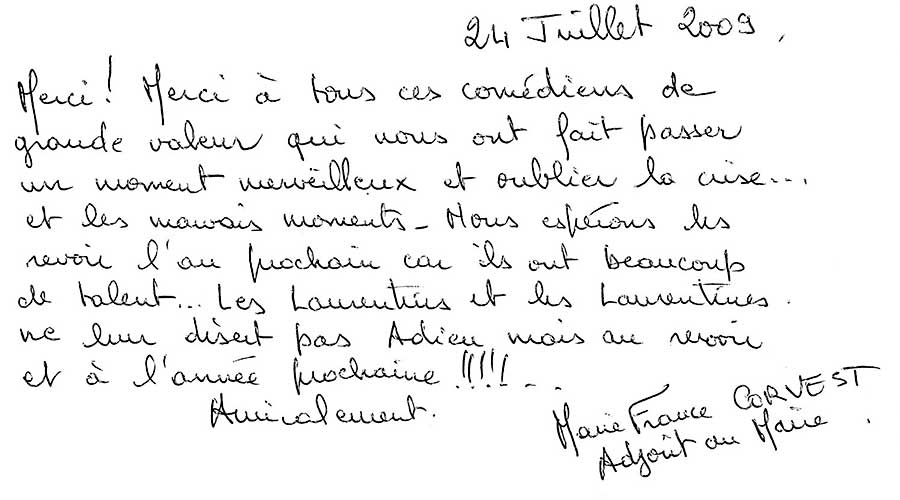 24 Juillet 2009.
Merci! Merci à tous ces comédiens de
grande valeur qui nous ont fait passer
un moment merveilleux et oublier la crise...
et les mauvais moments - Nous espérons les
revoir l'an prochain car ils ont beaucoup
de talent... Les Laurentins et les Laurentines.
ne leur disent pas Adieu mais au revoir
et à l'année prochaine !!!!...
Amicalement.
Marie France CORVEST
Adjoint au Maire.